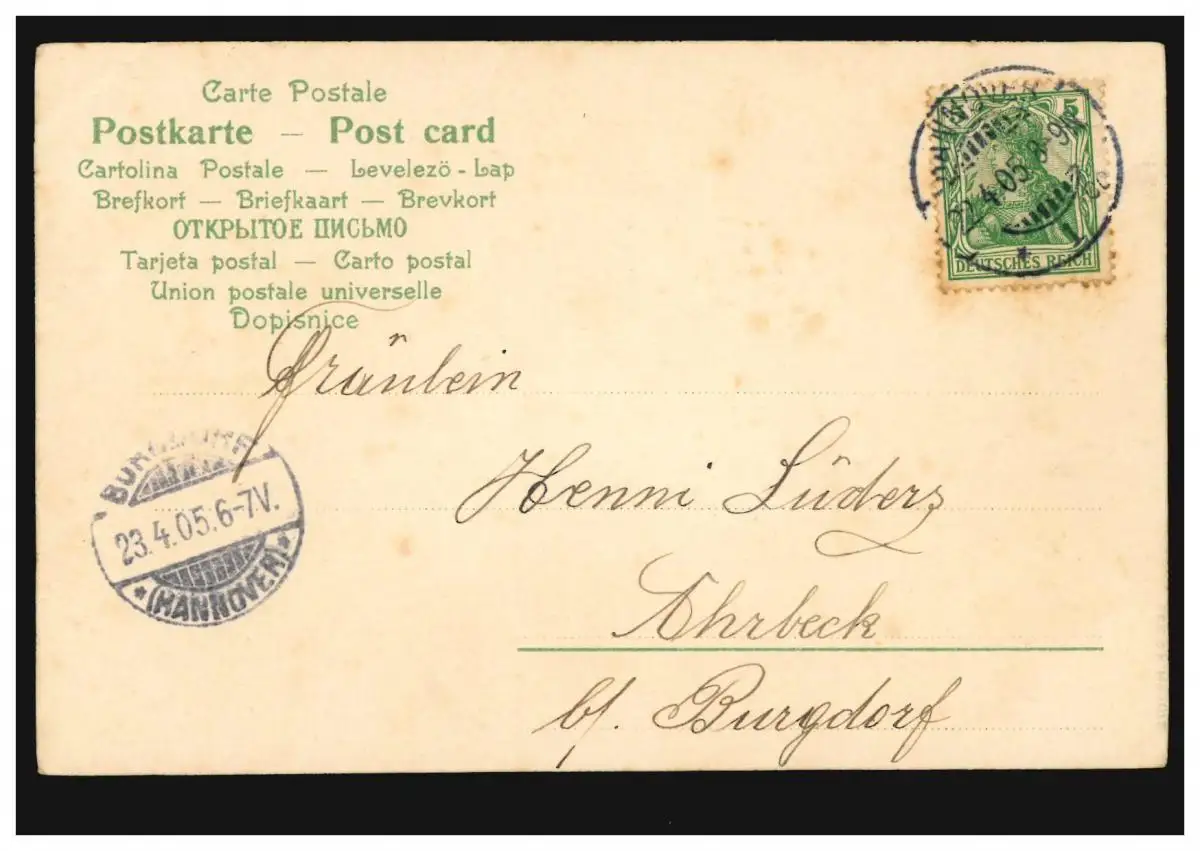 Carte Postale
Postkarte — Post card
Cartolina Postale — Levelező - Lap
Brefkort — Briefkaart — Brevkort
ОТКРЫТОЕ ПИСЬМО
Tarjeta postal — Carto postal
Union postale universelle
Dopisnice
HANNOVER
22.4.05.8-9N.
1
5
DEUTSCHES REICH
Fräulein
Henni Lüders
Ahrbeck
b/. Burgdorf
BURGDORF
23.4.05.6-7V.
*(HANNOVER)*